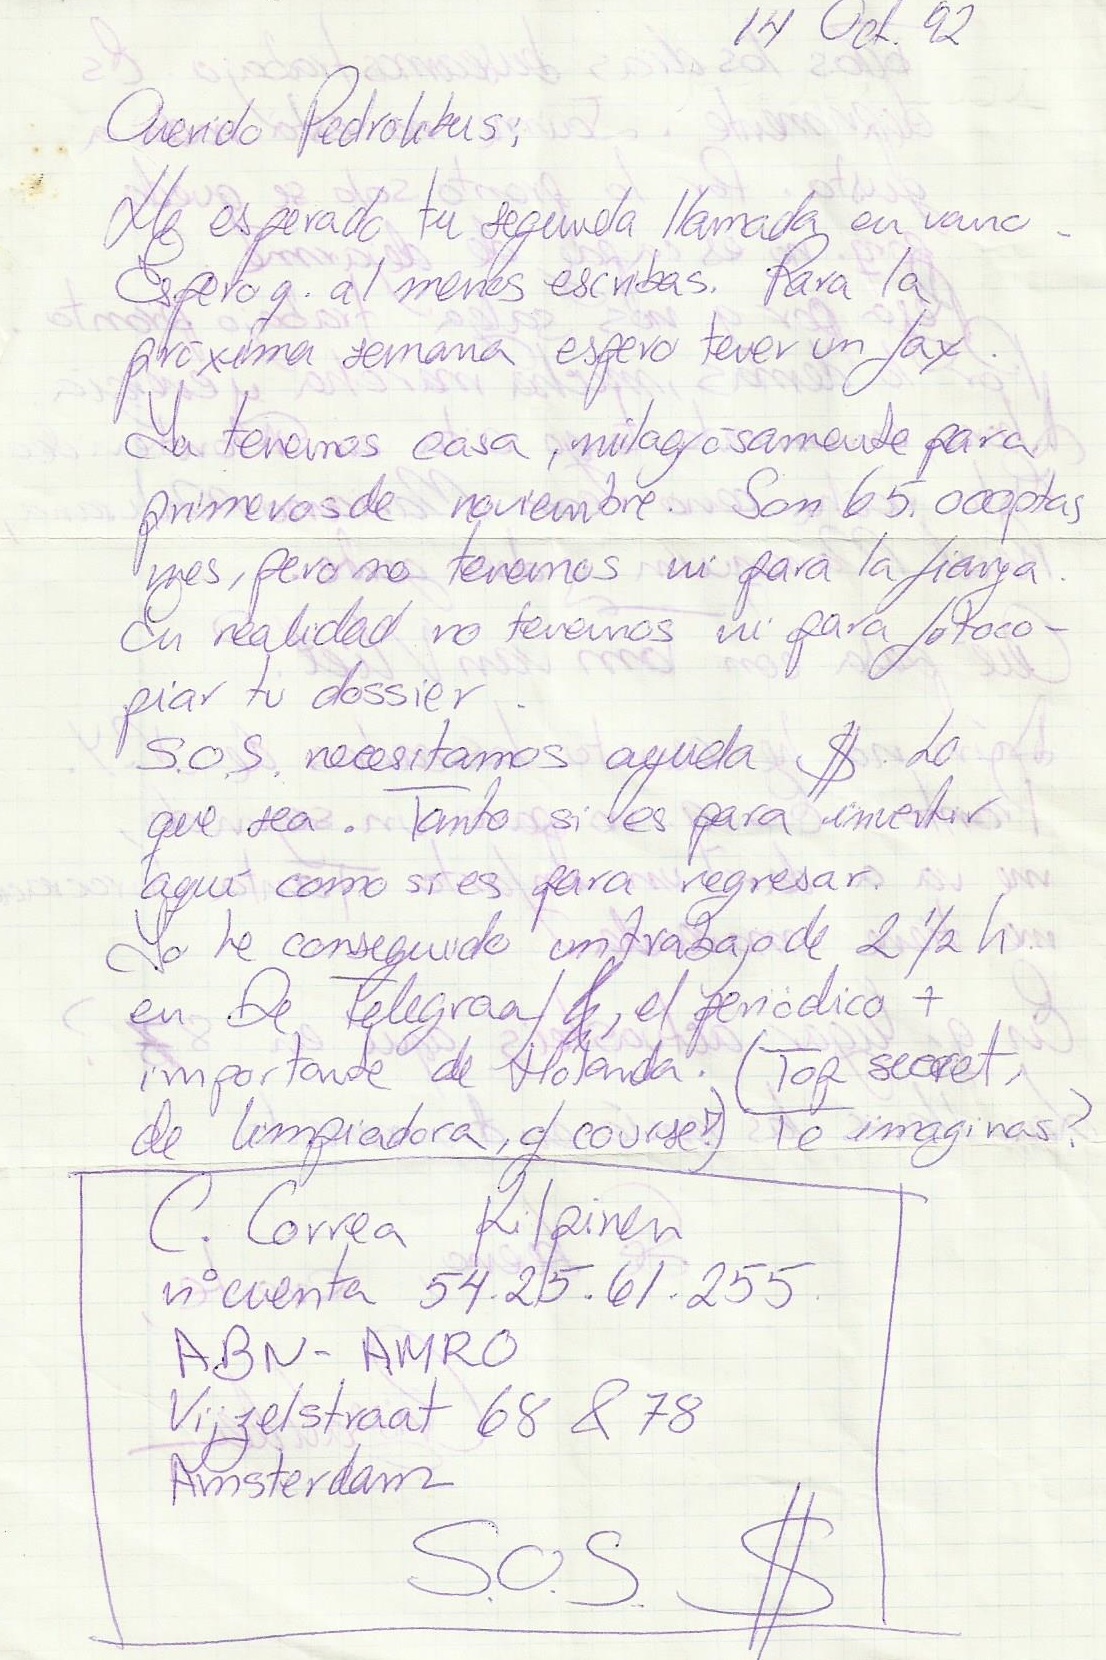 14 Oct. 92
Querido Pedrolikus;
He esperado tu segunda llamada en vano.
Espero q. al menos escribas. Para la
próxima semana espero tener un fax.
Ya tenemos casa, milagrosamente para
primeros de noviembre. Son 65.000 ptas
mes, pero no tenemos ni para la fianza.
En realidad no tenemos ni para fotoco-
piar tu dossier.
S.O.S. necesitamos ayuda $. Lo
que sea. Tanto si es para invertir
aquí como si es para regresar.
Yo he conseguido un trabajo de 2 1/2 h.
en De Telegraaf, el periódico +
importante de Holanda. (Top secret,
de limpiadora, of course!) Te imaginas?
C. Correa Kilpinen
nº cuenta 54.25.61.255.
ABN-AMRO
Vijzelstraat 68 & 78
Amsterdam
S.O.S. $